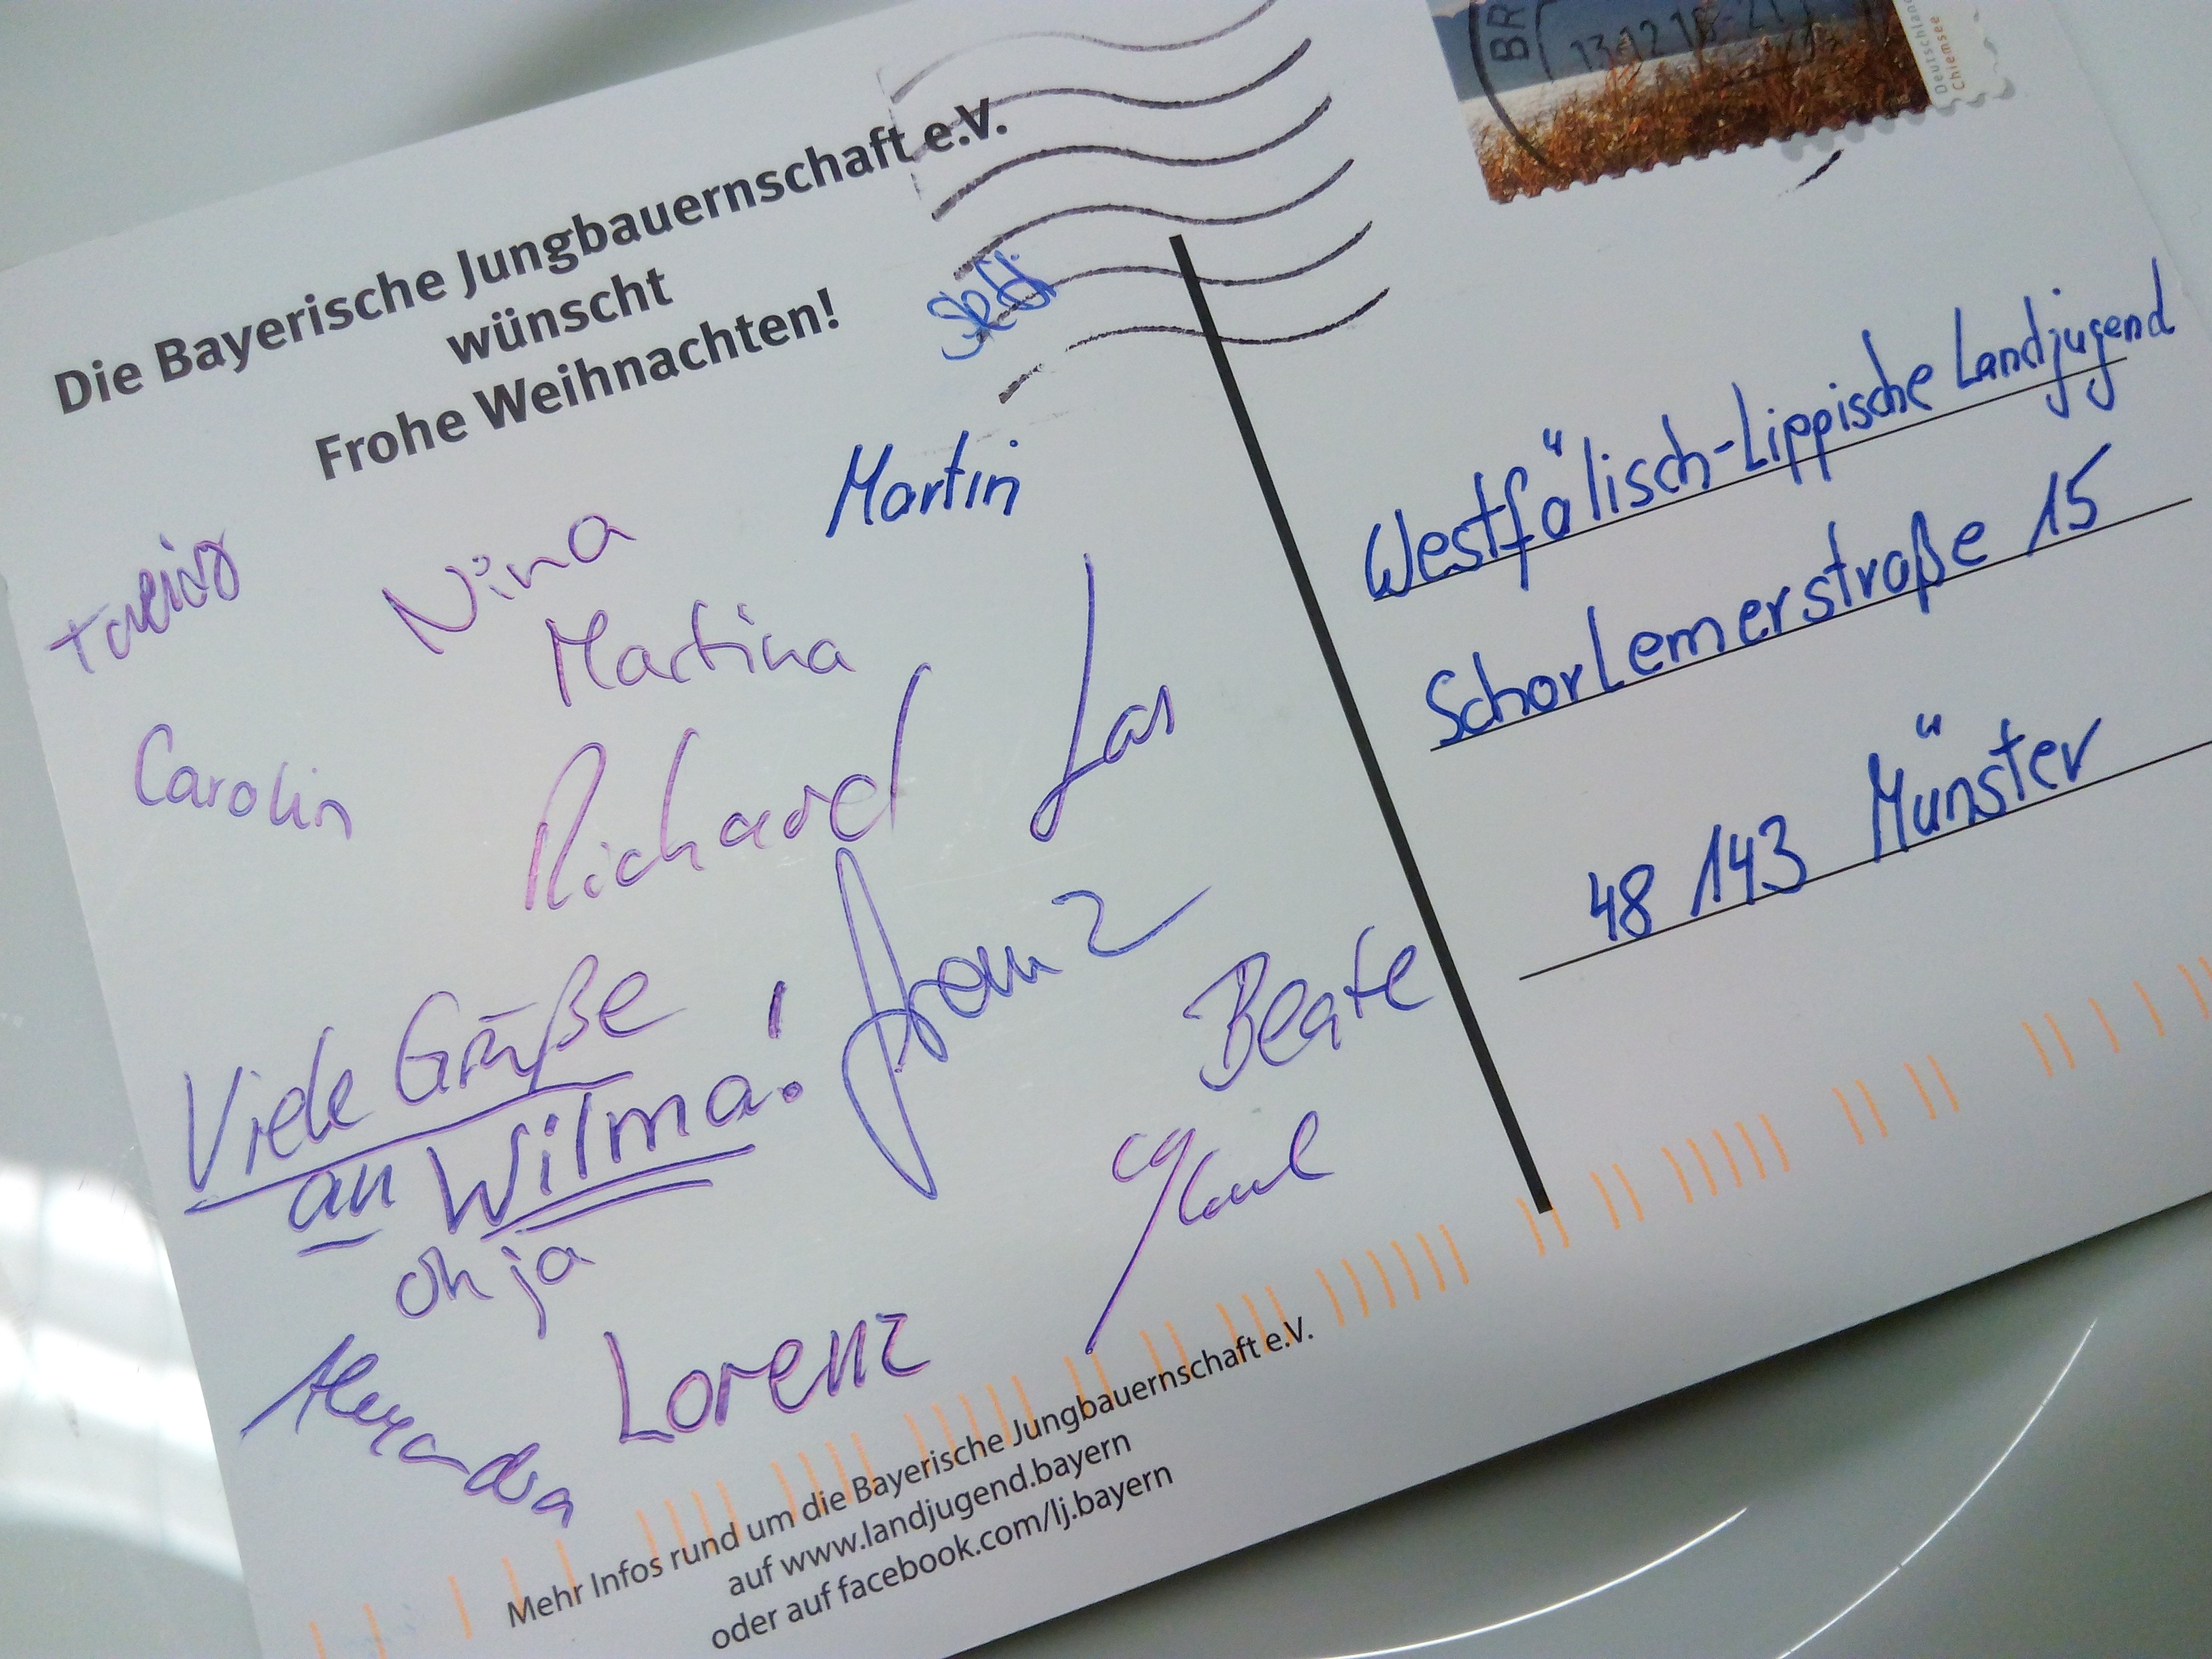 Die Bayerische Jungbauernschaft e.V.
wünscht
Frohe Weihnachten!
Martin
Nina
Martina
Carolin
Richard
Franz
Beate
Viele Grüße
an Wilma!
oh ja
Alexandra
Lorenz
Mehr Infos rund um die Bayerische Jungbauernschaft e.V.
auf www.landjugend.bayern
oder auf facebook.com/lj.bayern
BR
13.12.16-21
Deutschland
Chiemsee
Westfälisch-Lippische Landjugend
Schorlemerstraße 15
48143 Münster